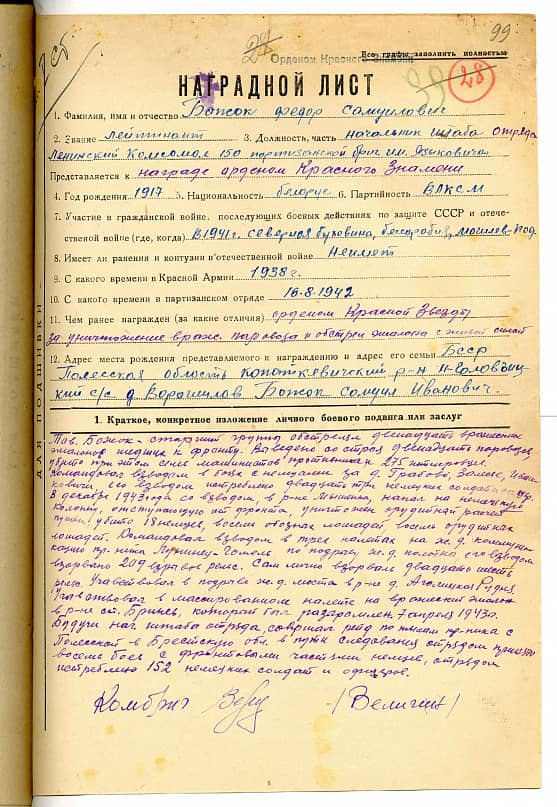 99
24
Орденом Красного Знамени
Все графы заполнять полностью
НАГРАДНОЙ ЛИСТ
28
1. Фамилия, имя и отчество Божок Федор Самуилович
2. Звание лейтинант 3. Должность, часть начальник штаба отряда
Ленинский Комсомол 150 партизанской бриг им.
Представляется к награде орденом Красного Знамени
4. Год рождения 1917 5. Национальность белорус 6. Партийность ВЛКСМ
7. Участие в гражданской войне, последующих боевых действиях по защите СССР и отече-
ственной войне (где, когда) В 1941г. северная буковина, бесарабия, могилев-Под.
8. Имеет ли ранения и контузии в отечественной войне Неимеет
9. С какого времени в Красной Армии 1938 г.
10. С какого времени в партизанском отряде 16-8-1942
11. Чем ранее награжден (за какие отличия) орденом Красной Звезды
за уничтожение враж. паровоза и обстрел эшалона с живой силой
12. Адрес места рождения представляемого к награждению и адрес его семьи БССР
Полесская область копаткевический р-н
с/с д. Ворашилов Божок Самуил Иванович.
ДЛЯ ПОДШИВКИ
1. Краткое, конкретное изложение личного боевого подвига или заслуг
Тов. Божок - старший группы обстрелял двенадцать вражеских
эшалонов идущих к фронту. Выведено со строя двенадцать паровозов
убито при этом семь машинистов противника 275
командовал взводом в бою с немцами за д. Грабово, Залесье,
его взводом истреблено двадцать три немецких солдат и
В декабре 1943 года со взводом, в р-не Мышанка, напал на немецкую
колонну, отступающую от фронта, уничтожен орудийный расчет
пушки, убито 18 немцев, восемь обозных лошадей, восемь орудийных
лошадей. Командовал взводом в трех налетах на ж.д. коммуни-
кацию пр-ника Лунинец-Гомель по подрыву ж.д. полотна его взводом
взорвано 209 рельс. Сам лично взорвал двадцать шесть
рельс. Учавствовал в подрыве ж.д. моста в р-не д. Рудня
Учавствовал в массированом налете на вражеский эшалон
в р-не ст. Бринев, который был разгромлен 7 апреля 1943г.
Будучи нач штаба отряда, совершал рейд по тылам пр-ника с
Полесской в Брестскую обл. в пути следования отрядом
восемь боев с фронтовыми частями немцев, отрядом
истреблено 152 немецких солдат и офицеров.
Комбриг (Величин)